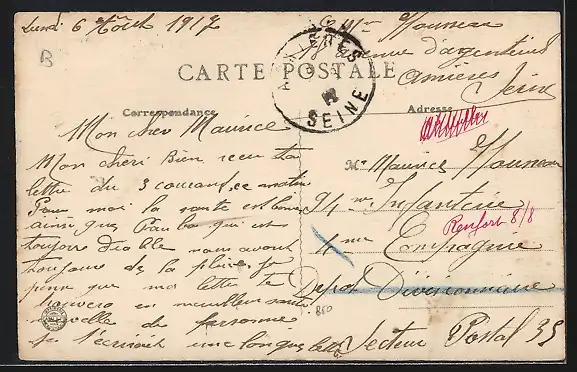 Lundi 6 Août 1917
Mr Mousseau
avenue d'argenteuil
asnières Seine
B
CARTE POSTALE
ASNIÈRES
SEINE
Correspondance
Adresse
Mon cher Maurice
Mon chéri Bien reçu ta
lettre du 3 courant, ce matin
Pour moi la santé est bonne
ainsi que qui est
toujours diable nous avons
toujours de la pluie, je
pense que ma lettre te
trouvera en meilleur santé
nouvelle de personne
Je t'écrirait une longue lettre
Mr Maurice Mousseau
94me Infanterie
Renfort 8/8
4me Compagnie
Dépot Divisionnaire
Secteur Postal 35